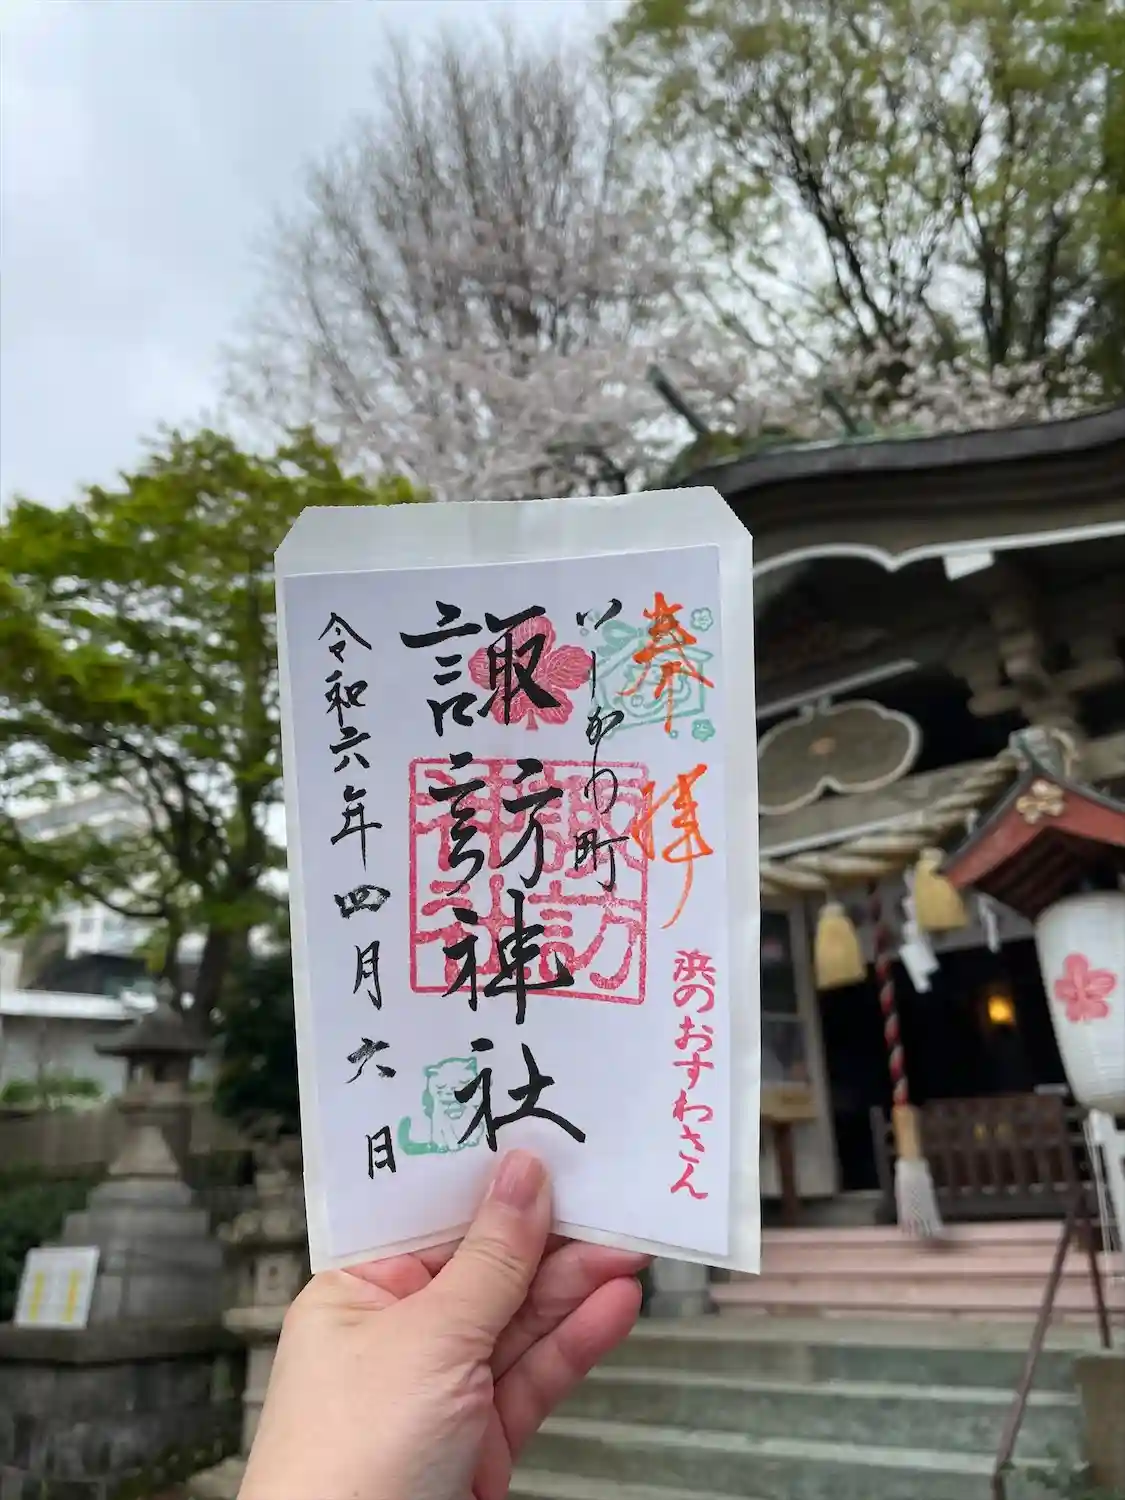 奉拝
浜のおすわさん
いしかわ町
諏訪神社
諏訪
神社
令和六年四月六日